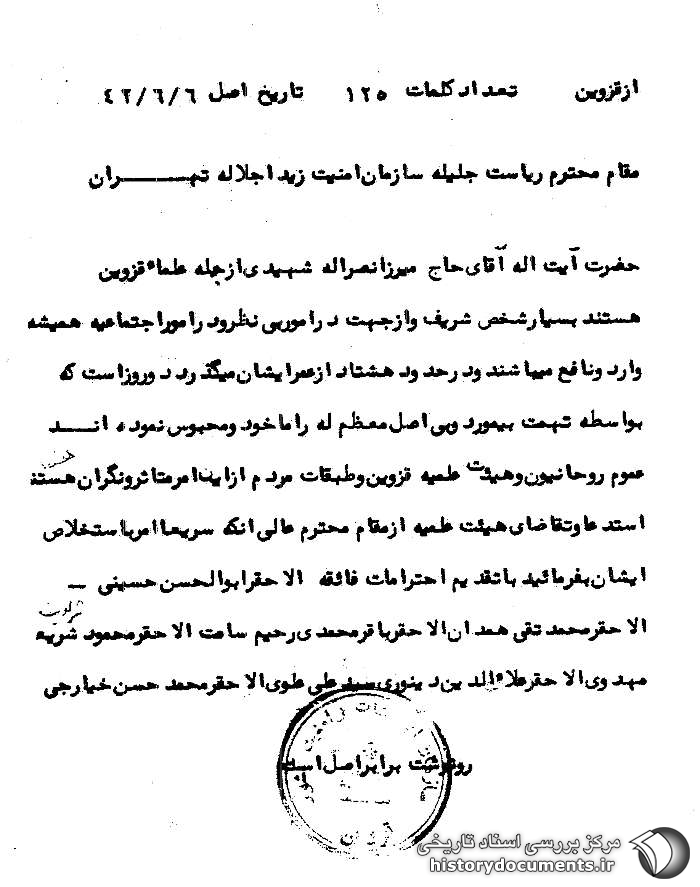 از قزوین تعداد کلمات ۱۲۵ تاریخ اصل ۴۲/۶/۶
مقام محترم ریاست جلیله سازمان امنیت زید اجلاله تهـــران
حضرت آیت اله آقای حاج میرزا نصراله شهیدی از جمله علماء قزوین
هستند بسیار شخص شریف و از جهت در امور بی نظر و در امور اجتماعیه همیشه
وارد و نافع میباشند و در حدود هشتاد از عمر ایشان میگذرد دو روز است که
بواسطه تهمت بیمورد و بی اصل معظم له را ماخود و محبوس نموده انـــد
عموم روحانیون و هیئت علمیه قزوین و طبقات مردم از این امر متاثر و نگران هستند
استدعا و تقاضای هیئت علمیه از مقام محترم عالی آنکه سریعا امر باستخلاص
ایشان بفرمائید با تقدیم احترامات فائقه الاحقر ابوالحسن حسینی –
الاحقر محمد تقی همدان الاحقر باقر محمدی رحیم سامت الاحقر محمود شریعت
مهدوی الاحقر علاء الدین دینوری سید علی علوی الاحقر محمد حسن خیارجی
رونوشت برابر اصل است
قزوین
مرکز بررسی اسناد تاریخی
historydocuments.ir